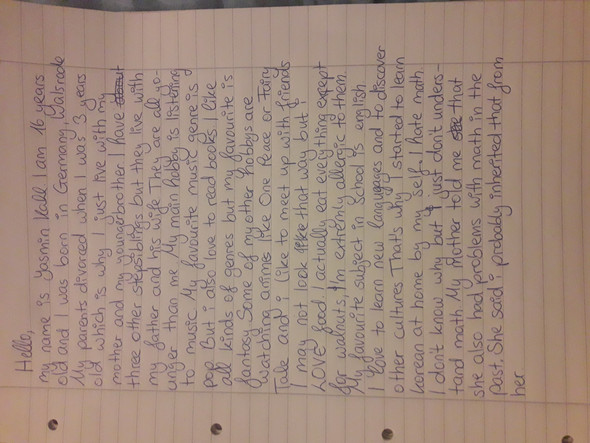 Hello,
my name is Yasmin Kall I am 16 years
old and I was born in Germany, Walsrode
My parents divorced when I was 3 years
old which is why I just live with my
mother and my youngerbrother I have
three other stepsiblings but they live with
my father and his wife They are all yo-
unger than me My main hobby is listening
to music My favourite music genre is
pop But i also love to read books I like
all kinds of genres but my favourite is
fantasy Some of my other hobbys are
watching animes like One Peace or Fairy
Tale and i like to meet up with friends
I may not look like that way but i
LOVE food I actually eat everything exept
for walnuts, I'm extremly allergic to them
My favourite subject in School is english
I love to learn new languages and to discover
other cultures That's why I started to learn
korean at home by my self I hate math
I don't know why but I just don't unders-
tand math My Mother told me that
she also had problems with math in the
past. She said i probably inherited that from
her